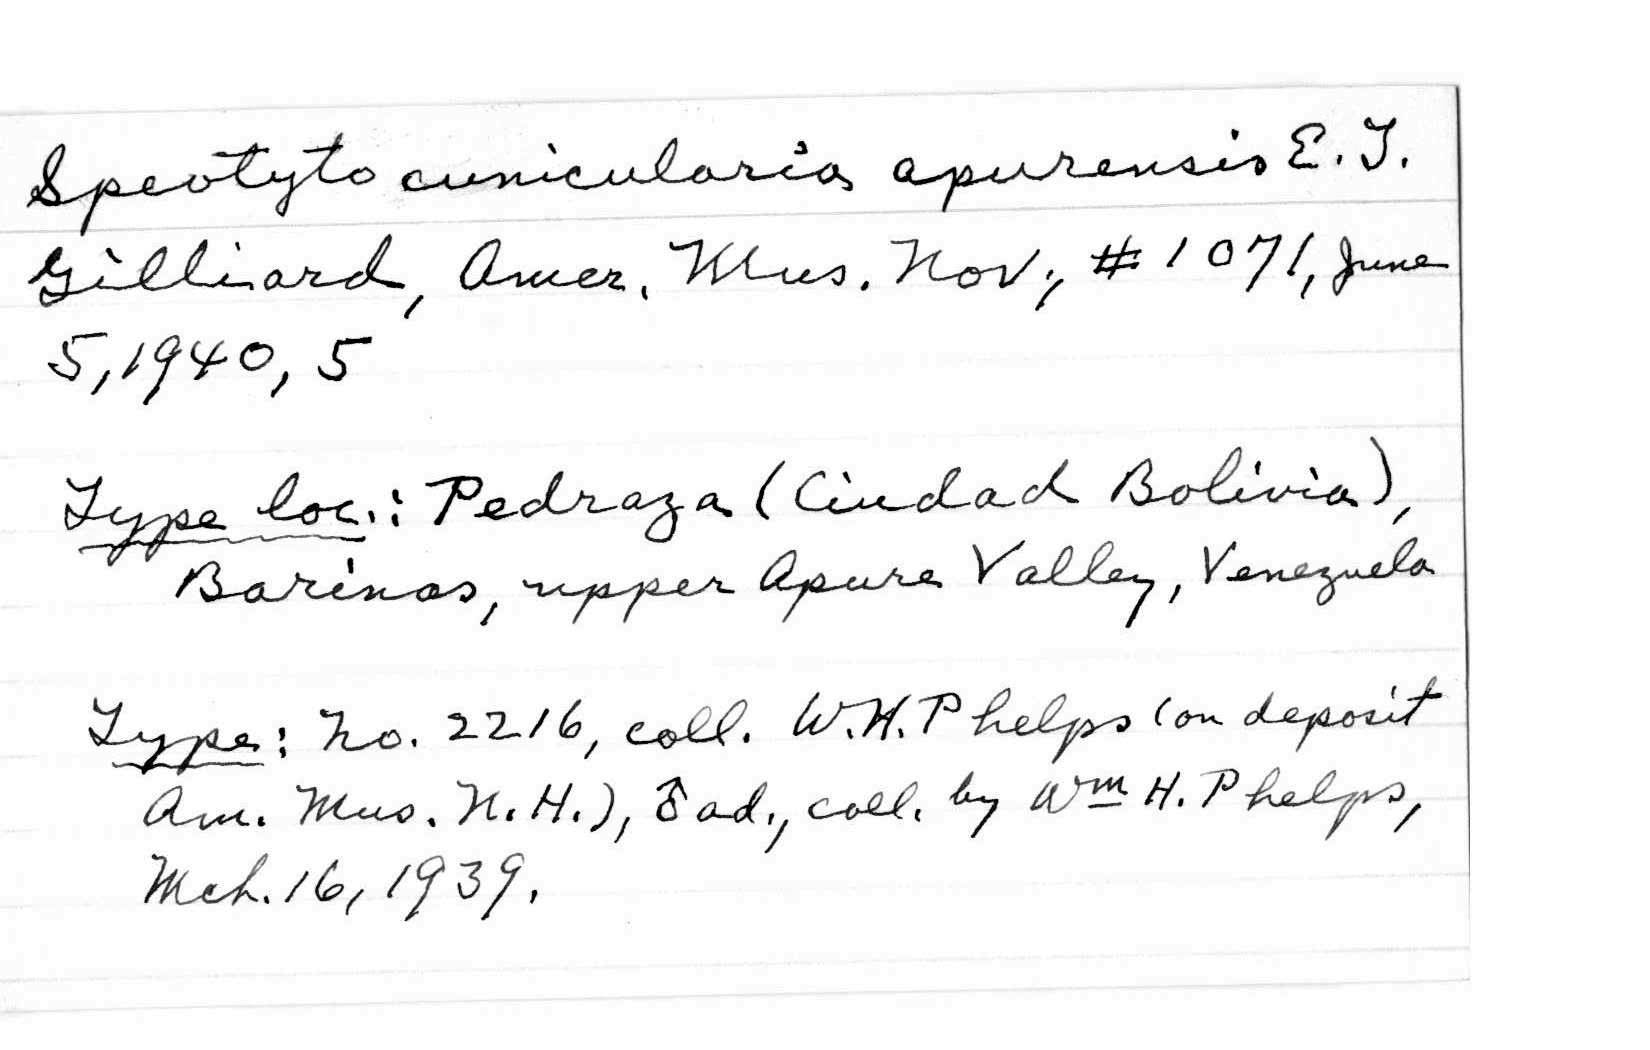 Speotyto cunicularia apurensis E.T.
Gilliard, Amer. Mus. Nov., #1071, June
5, 1940, 5
Type loc.: Pedraza (Ciudad Bolivia),
Barinas, upper Apure Valley, Venezuela
Type: No. 2216, coll. W.H. Phelps (on deposit
Am. Mus. N.H.), ♂ ad., coll. by Wm H. Phelps,
Mch. 16, 1939.